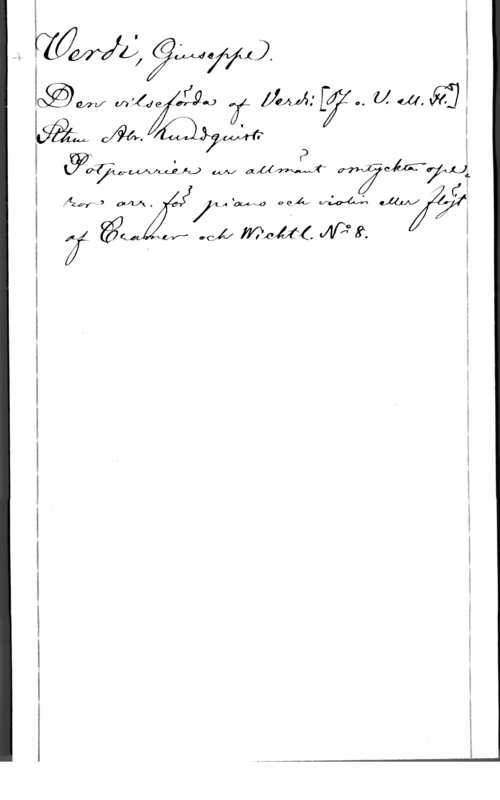 Verdi, Giuseppe.
Den vilseförda af Verdi: [Pf. o. V. ell. Fl.]
Sthm Abr. Lundquist
Potpourrier ur allmänt omtyckta ope-
ror arr. för piano och violin eller flöjt
af Cramer och Wichtl. No 8.